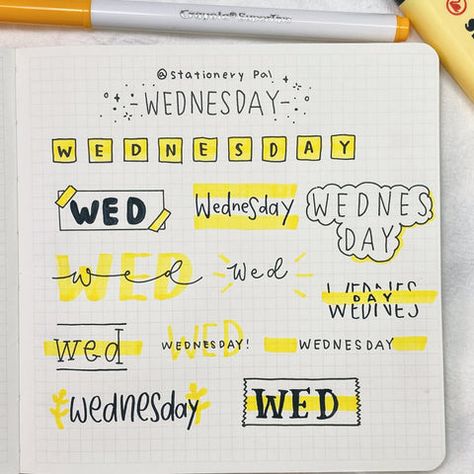 Crayola SuperTips
@Stationery Pal
-WEDNESDAY-
WEDNESDAY
WED
Wednesday
WEDNES
DAY
WED
wed
Wed
WEDNES
DAY
WEDNES
wed
WED
WEDNESDAY!
WEDNESDAY
wednesday
WED